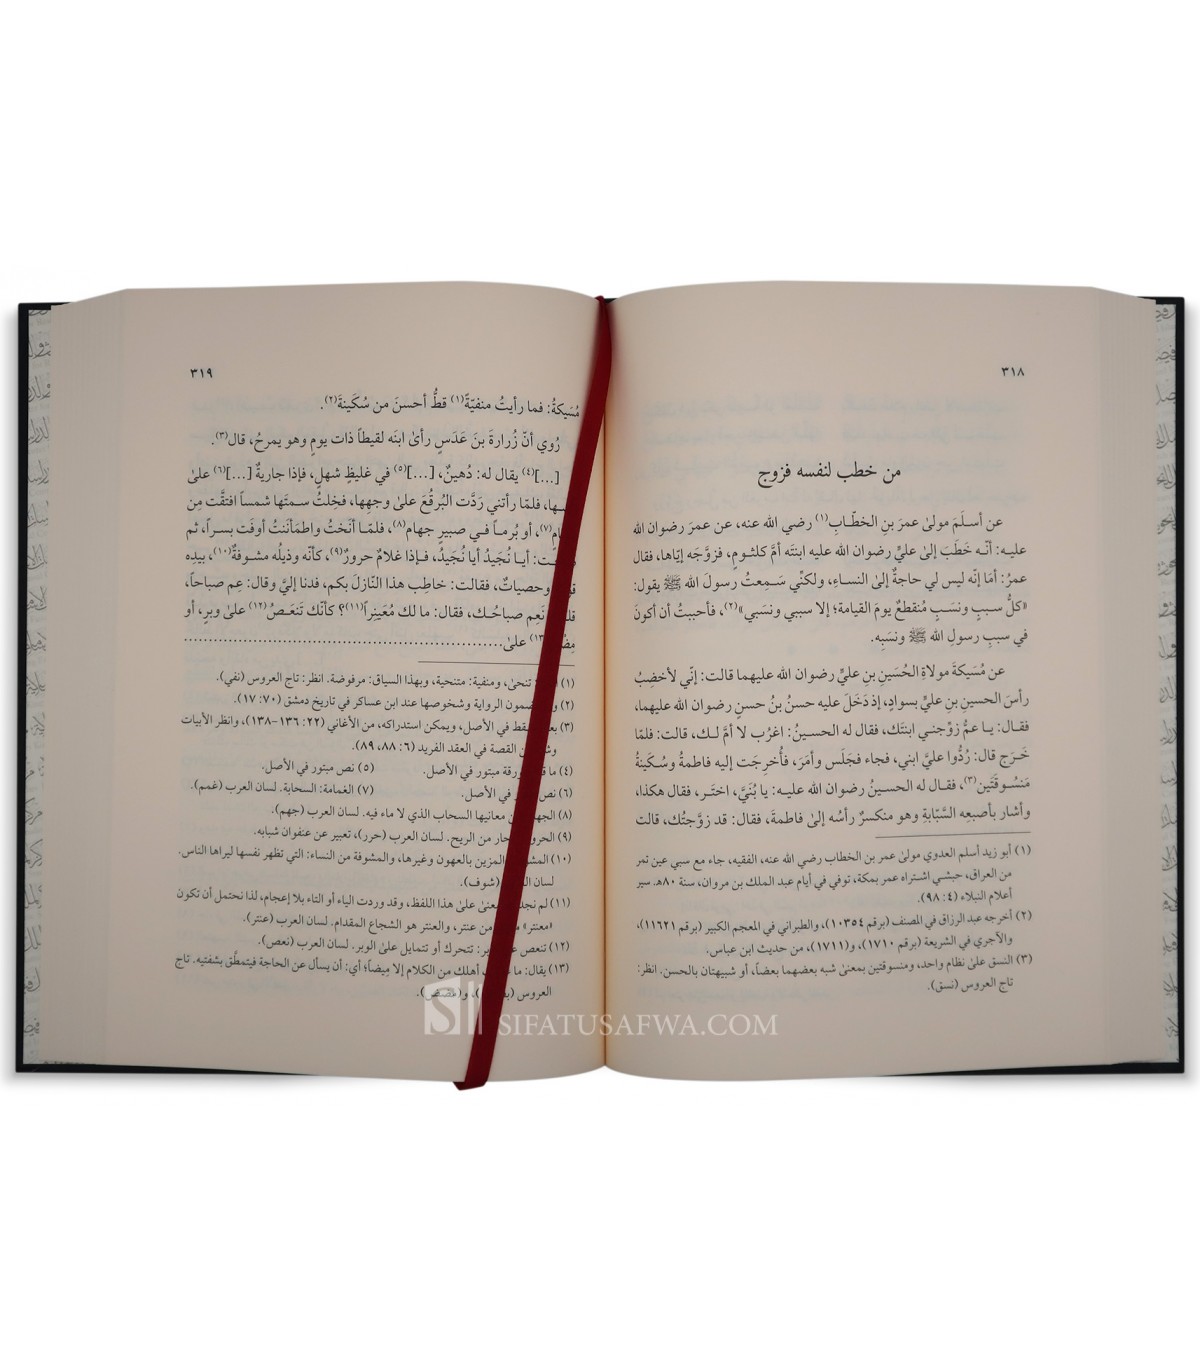 ٣١٨
من خطب لنفسه فزوج
عن أسـلَمَ مولىٰ عمرَ بنِ الخطّـابِ(١) رضي الله عنه، عن عمرَ رضوان الله
عليـه: أنّـه خَطَبَ إلىٰ عليٍّ رضوان الله عليه ابنته أمَّ كلثـومٍ، فزوَّجَه إيّاها، فقال
عمرُ: أمَا إنّه ليس لي حاجةٌ إلىٰ النساءِ، ولكنّي سَـمِعتُ رسولَ الله ﷺ يقول:
«كلُّ سـببٍ ونسَـبٍ مُنقطعٌ يومَ القيامة؛ إلا سببي ونسَبي»(٢)، فأحببتُ أن أكونَ
في سببِ رسولِ الله ﷺ ونسَبِه.
عن مُسَيكةَ مولاةِ الحُسَينِ بنِ عليٍّ رضوان الله عليهما قالت: إنّي لأخضِبُ
رأسَ الحسينِ بنِ عليٍّ بسوادٍ، إذ دَخَلَ عليه حسنُ بنُ حسنٍ رضوان الله عليهما،
فقـال: يـا عمُّ زوِّجنـي ابنتَك، فقال له الحسـينُ: اغرُب لا أمَّ لـك، قالت: فلمّا
خَـرَج قال: رُدُّوا عليَّ ابني، فجاء فجَلَس وأمَرَ، فأُخرِجَت إليه فاطمةُ وسُكَينةُ
مَنسُـوقَتَين(٣)، فقـال له الحسينُ رضوان الله عليـه: يا بُنَيَّ، اختَـر، فقال هكذا،
وأشار بأصبعِه السَّبّابةِ وهو منكسرٌ رأسُه إلىٰ فاطمةَ، فقال: قد زوَّجتُك، قالت
(١) أبو زيد أسلم العدوي مولىٰ عمر بن الخطاب رضي الله عنه، الفقيه، جاء مع سبي عين تمر
من العراق، حبشي اشتراه عمر بمكة، توفي في أيام عبد الملك بن مروان، سنة ٨٠هـ. سير
أعلام النبلاء (٤: ٩٨).
(٢) أخرجه عبد الرزاق في المصنف (برقم ١٠٣٥٤)، والطبراني في المعجم الكبير (برقم ١١٦٢١)،
والآجري في الشريعة (برقم ١٧١٠)، و(١٧١١)، من حديث ابن عباس.
(٣) النسق علىٰ نظام واحد، ومنسوقتين بمعنىٰ شبه بعضهما بعضاً، أو شبيهتان بالحسن. انظر:
تاج العروس (نسق).
٣١٩
مُسَيكةُ: فما رأيتُ منفيّةً(١) قطُّ أحسنَ من سُكَينةَ(٢).
رُوي أنّ زُرارةَ بنَ عَدَسٍ رأىٰ ابنَه لقيطاً ذات يومٍ وهو يمرحُ، قال(٣).
[...](٤) يقال له: دُهينٌ، [...](٥) في غليظٍ شهلٍ، فإذا جاريةٌ [...](٦) علىٰ
فلمّا رأتني رَدَّت البُرقُعَ علىٰ وجهِها، فخِلتُ سمتَها شمساً افتقَّت مِن
(٧)، أو بُرمـاً فـي صبيرٍ جهام(٨)، فلمّـا أنَختُ واطمَأنَنتُ أوفَت بسـراً، ثم
أيـا نُجَيدُ أيا نُجَيدُ، فـإذا غلامٌ حرورٌ(٩)، كأنّه وذيلُه مشوفةٌ(١٠)، بيدِه
وحصياتٌ، فقالت: خاطِب هذا النّازلَ بكم، فدنا إليَّ وقال: عِم صباحاً،
نَعِم صباحُـك، فقال: ما لك مُعَينِراً(١١)؟ كأنّك تَنعَـصُ(١٢) علىٰ وبرٍ، أو
(١٣) علىٰ..............................................
(١) تنحىٰ، ومنفية: متنحية، وبهذا السياق: مرفوضة. انظر: تاج العروس (نفي).
(٢) مضمون الرواية وشخوصها عند ابن عساكر في تاريخ دمشق (٧٠: ١٧).
(٣) في الأصل، ويمكن استدراكه، من الأغاني (٢٢: ١٣٦-١٣٨)، وانظر الأبيات
القصة في العقد الفريد (٦: ٨٨، ٨٩).
(٤) ورقة مبتور في الأصل. (٥) نص مبتور في الأصل.
(٦) نص في الأصل. (٧) الغمامة: السحابة. لسان العرب (غمم).
(٨) معانيها السحاب الذي لا ماء فيه. لسان العرب (جهم).
(٩) الحار من الريح. لسان العرب (حرر)، تعبير عن عنفوان شبابه.
(١٠) المزين بالعهون وغيرها، والمشوفة من النساء: التي تظهر نفسها ليراها الناس.
لسان (شوف).
(١١) لم نجد معنىٰ علىٰ هذا اللفظ، وقد وردت الياء أو التاء بلا إعجام، لذا نحتمل أن تكون
«معنتر» من عنتر، والعنتر هو الشجاع المقدام. لسان العرب (عنتر).
(١٢) تنعص تتحرك أو تتمايل علىٰ الوبر. لسان العرب (نعص).
(١٣) يقال: أهلك من الكلام إلا مِيضاً؛ أي: أن يسأل عن الحاجة فيتمطّق بشفتيه. تاج
العروس
SIFATUSAFWA.COM